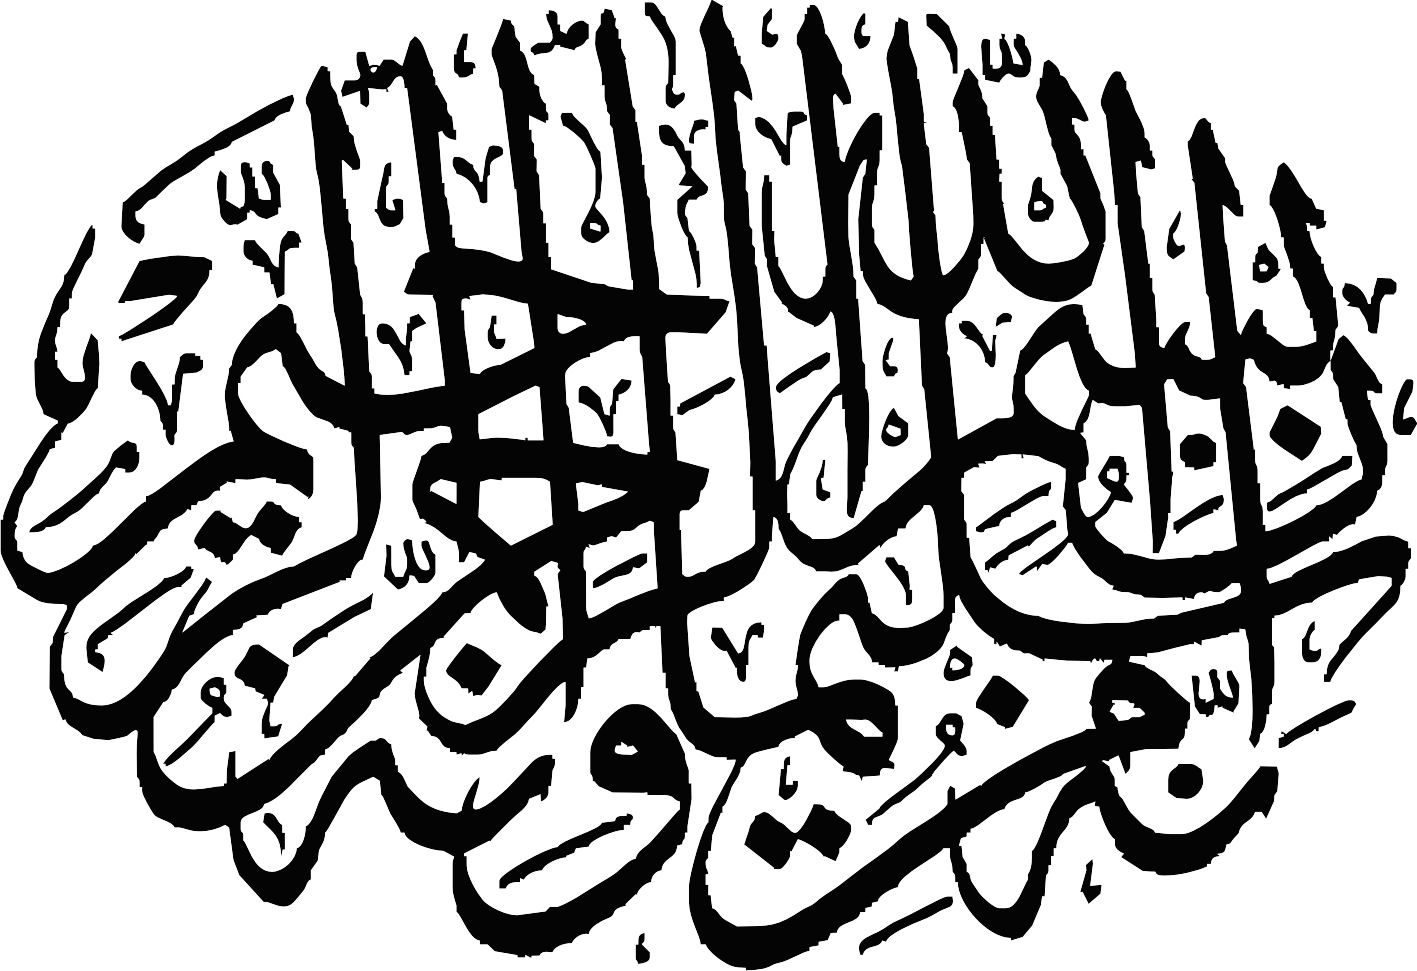 إنه من سليمن وإنه
بسم الله الرحمن الرحيم